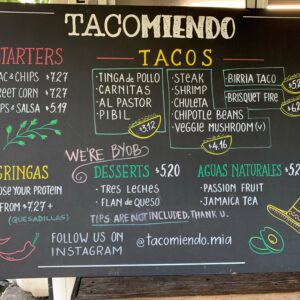 TACOMIENDO
STARTERS
AC & CHIPS $7.27
EET CORN $7.27
PS & SALSA $5.19
TACOS
• TINGA DE POLLO
• CARNITAS
• AL PASTOR
• PIBIL
$3.12
• STEAK
• SHRIMP
• CHULETA
• CHIPOTLE BEANS
• VEGGIE MUSHROOM (V)
$4.16
• BIRRIA TACO
• BRISQUET FIRE
WE'RE BYOB
GRINGAS
OSE YOUR PROTEIN
FROM $7.27 +
(QUESADILLAS)
DESSERTS $5.20
• TRES LECHES
• FLAN DE QUESO
AGUAS NATURALES $5.20
• PASSION FRUIT
• JAMAICA TEA
TIPS ARE NOT INCLUDED, THANK U.
FOLLOW US ON
INSTAGRAM
@tacomiendo.mia